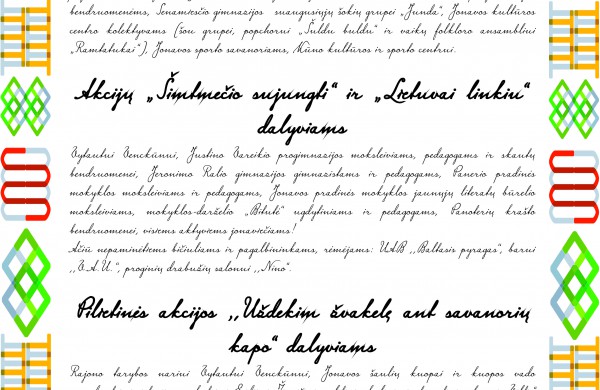 bendruomenėms, Senamiesčio gimnazijos suaugusiųjų šokių grupei „Junda", Jonavos kultūros
centro kolektyvams (šou grupei, popchorui „Šuldu buldu" ir vaikų folkloro ansambliui
„Ramtatukai"), Jonavos sporto savanoriams, Kūno kultūros ir sporto centrui.
Akcijų „Šimtmečio sujungti" ir „Lietuvai linkiu"
dalyviams
Vytautui Venckūnui, Justino Vareikio progimnazijos moksleiviams, pedagogams ir skautų
bendruomenei, Jeronimo Ralio gimnazijos gimnazistams ir pedagogams, Panerio pradinės
mokyklos moksleiviams ir pedagogams, Jonavos pradinės mokyklos jaunųjų literatų būrelio
moksleiviams, mokyklos-darželio „Bitutė" ugdytiniams ir pedagogams, Panoterių krašto
bendruomenei, visiems aktyviems jonaviečiams!
Ačiū nepaminėtiems bičiuliams ir pagalbininkams, rėmėjams: UAB ,,Baltasis pyragas", barui
,,B.A.U.", proginių drabužių salonui ,,Nino".
Pilietinės akcijos ,,Uždekim žvakelę ant savanorių
kapo" dalyviams
Rajono tarybos nariui Vytautui Venckūnui, Jonavos šaulių kuopai ir kuopos vado